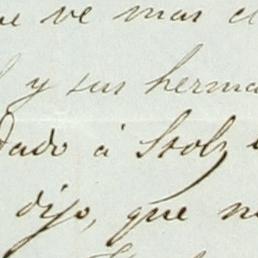 ue ve mas e
y sus herma
dado á Stolz
dijo, que n